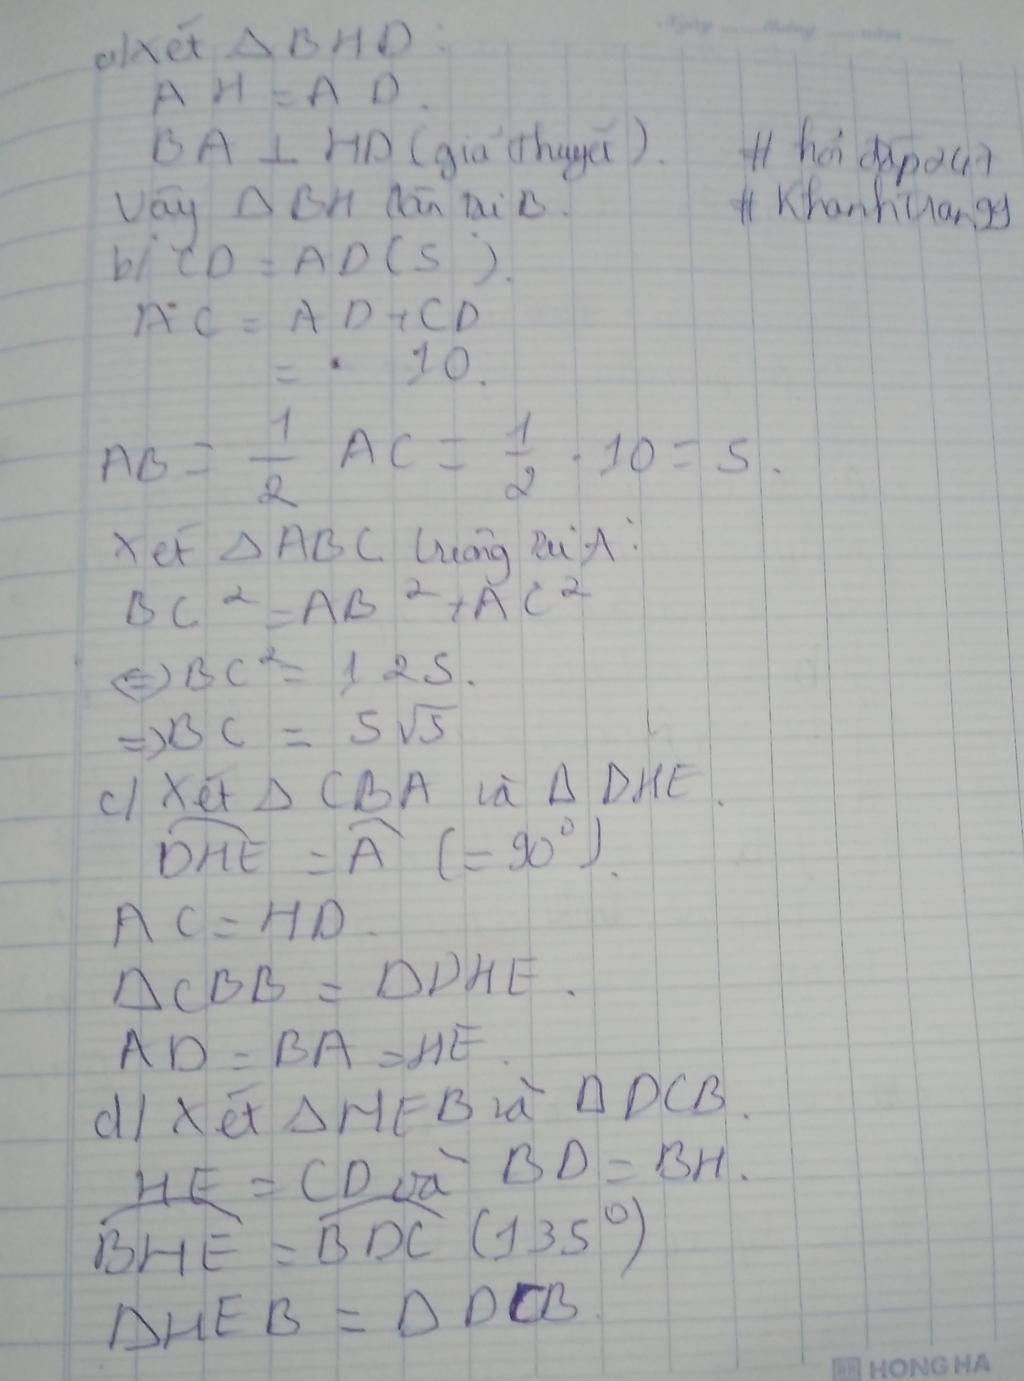 Ngày ..... tháng ..... năm .....
a/ Xét Δ BHD:
AH = AD.
BA ⊥ HD (giả thuyết). # hỏi đáp247
Vậy Δ BH cân tại B. # Khanhtrang
b/ CD = AD (5).
AC = AD + CD
= 10.
AB = 1/2 AC = 1/2 . 10 = 5.
Xét Δ ABC vuông tại A:
BC² = AB² + AC²
<=> BC² = 125.
=> BC = 5√5
c/ Xét Δ CBA và Δ DHE.
DHE = A (= 90°).
AC = HD.
Δ CBB = Δ DHE.
AD = BA = HE.
d/ Xét Δ HEB và Δ DCB.
HE = CD và BD = BH.
BHE = BDC (135°)
Δ HEB = Δ DCB.
HONG HA